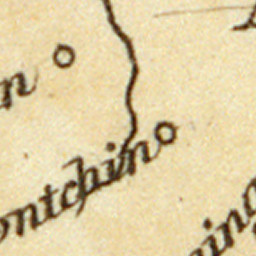 n
ontchin
ning